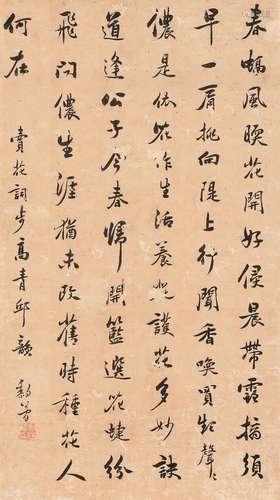 春幡風暖花開好侵晨帶露摘須
早一肩挑向隄上行聞香喚買聲〻
儂是依花作生活養護花多妙訣
道逢公子今春歸開籃選花蜨紛
飛問儂生涯猶未改舊時種花人
何在
賣花詞步高青邱韻